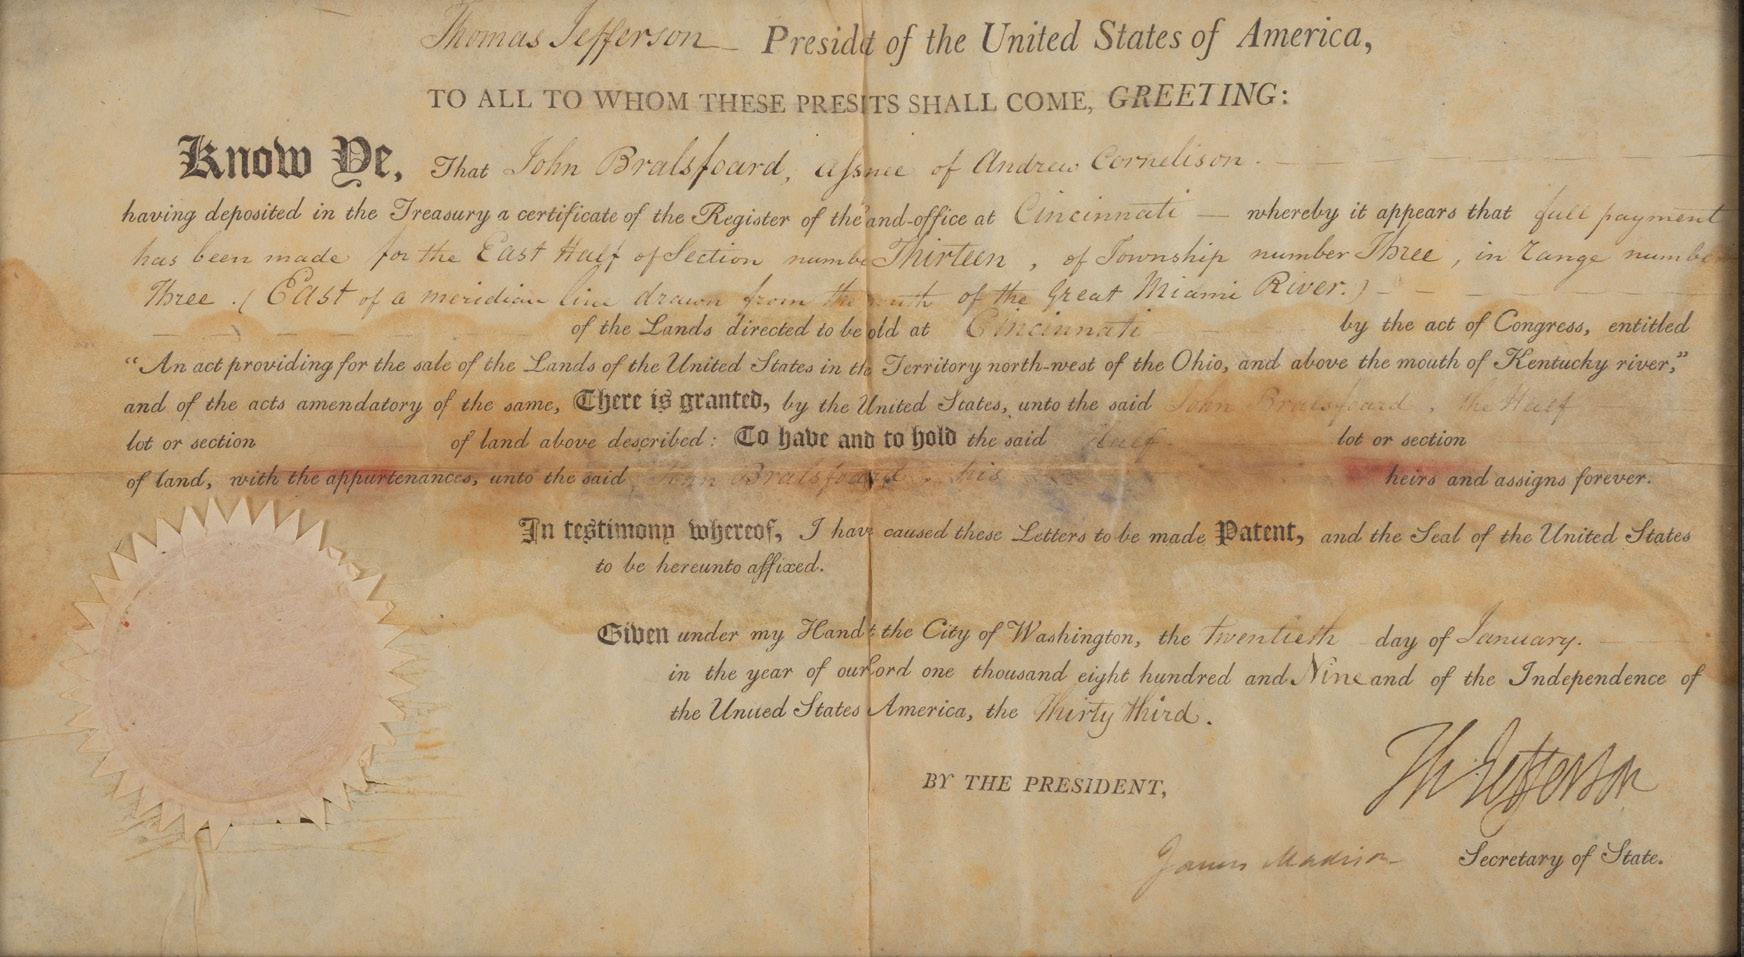 Thomas Jefferson Presidt of the United States of America,
TO ALL TO WHOM THESE PRESITS SHALL COME, GREETING:
Know Ye, That John Bralsfoard, assnee of Andrew Cornelison.
having deposited in the Treasury a certificate of the Register of the and-office at Cincinnati — whereby it appears that full payment
has been made for the East Half of Section numbe Thirteen, of Township number Three, in range numbe
Three. (East of a meridian line drawn from the mouth of the Great Miami River.)
of the Lands directed to be old at Cincinnati by the act of Congress, entitled
“An act providing for the sale of the Lands of the United States in th Territory north-west of the Ohio, and above the mouth of Kentucky river,”
and of the acts amendatory of the same, There is granted, by the United States, unto the said John Bralsfoard, the Half
lot or section of land above described: To have and to hold the said Half lot or section
of land, with the appurtenances, unto the said John Bralsfoard, his heirs and assigns forever.
In testimony whereof, I hav caused these Letters to be made Patent, and the Seal of the United States
to be hereunto affixed.
Given under my Hand t the City of Washington, the twentieth day of January.
in the year of our ord one thousand eight hundred and Nine and of the Independence of
the United States America, the thirty third.
BY THE PRESIDENT,
Th Jefferson
James Madison Secretary of State.